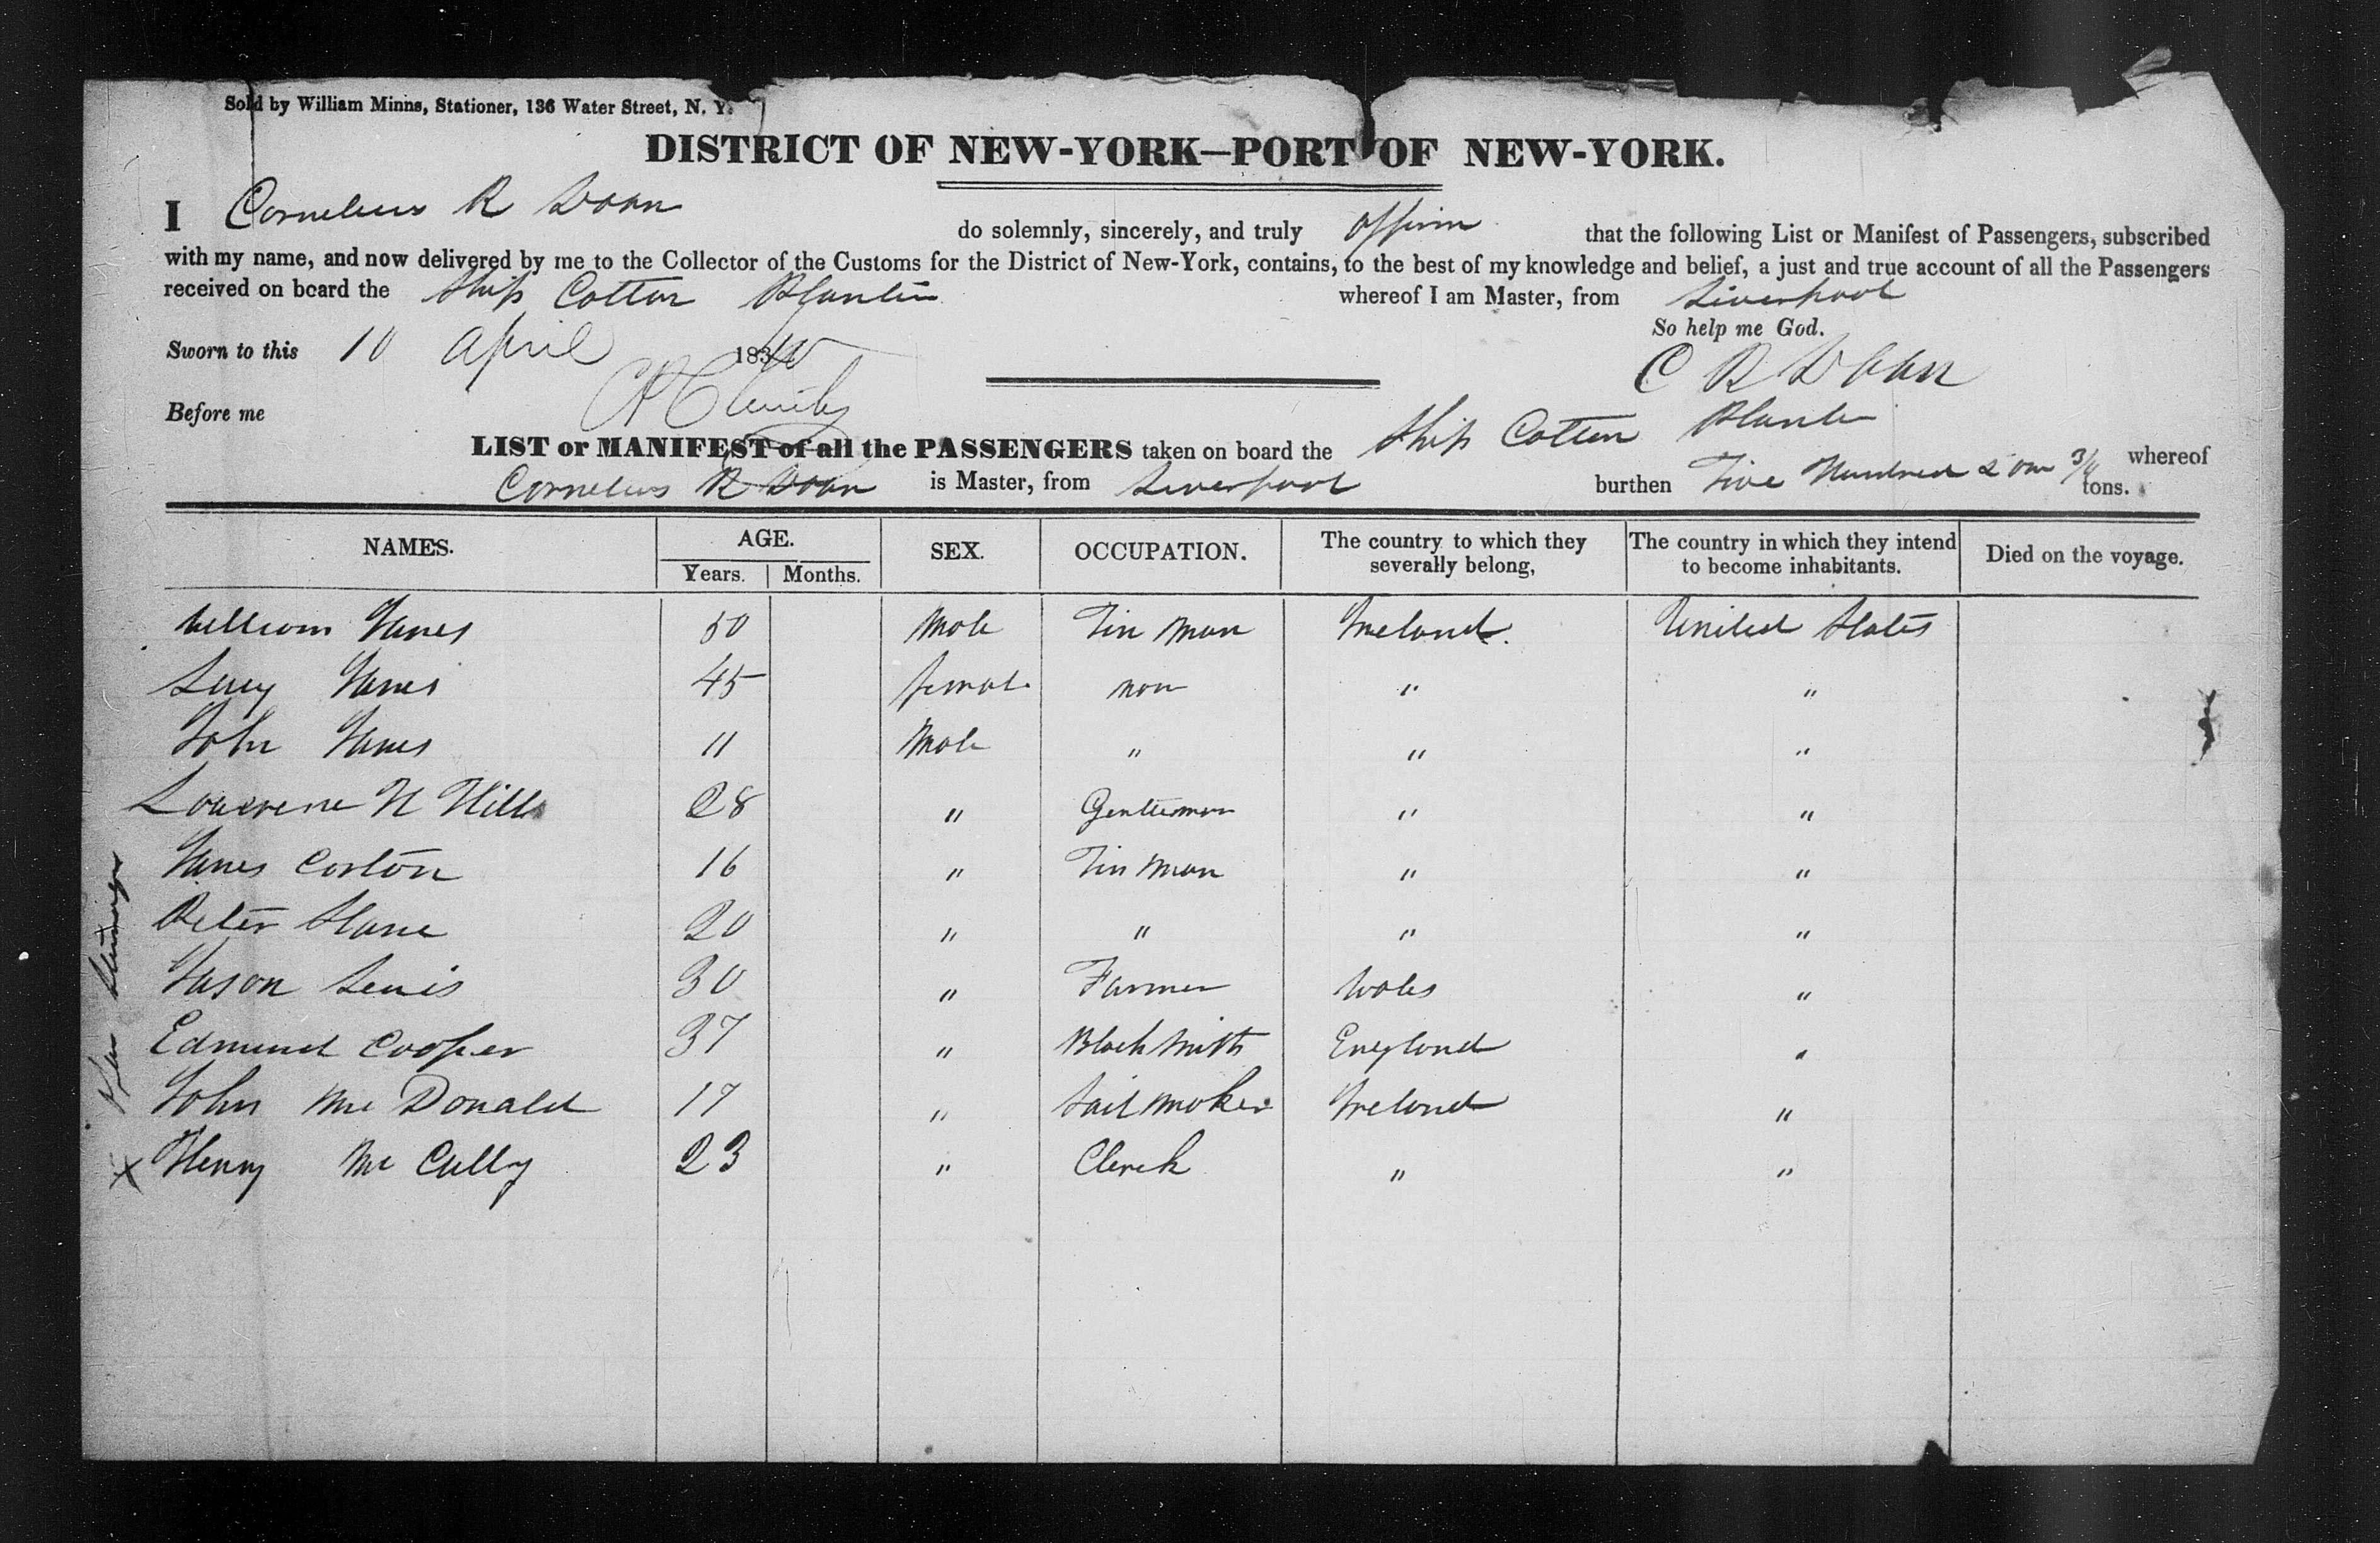 Sold by William Minns, Stationer, 136 Water Street, N. Y.
DISTRICT OF NEW-YORK—PORT OF NEW-YORK.
I Cornelius R Doan do solemnly, sincerely, and truly affirm that the following List or Manifest of Passengers, subscribed
with my name, and now delivered by me to the Collector of the Customs for the District of New-York, contains, to the best of my knowledge and belief, a just and true account of all the Passengers
received on board the Ship Cotton Planter whereof I am Master, from Liverpool
So help me God.
Sworn to this 10 April 1840
C R Doan
Before me
LIST or MANIFEST of all the PASSENGERS taken on board the Ship Cotton Planter whereof
Cornelius R Doan is Master, from Liverpool burthen Five Hundred & one 3/4 tons.
NAMES. AGE. SEX. OCCUPATION. The country to which they severally belong, The country in which they intend to become inhabitants. Died on the voyage.
Years. Months.
William Janes 50 Male Tin Man Ireland. United States
Lucy Janes 45 female non " "
John Janes 11 Male " " "
Lawrence N Hill 28 " Gentleman " "
James Corlon 16 " Tin Man " "
Peter Slane 20 " " " "
Jason Lewis 30 " Farmer Wales "
Edmund Cooper 37 " Black Smith England "
John Mc Donald 17 " Sail Maker Ireland "
x Henry Mc Cully 23 " Clerk " "
Steerage